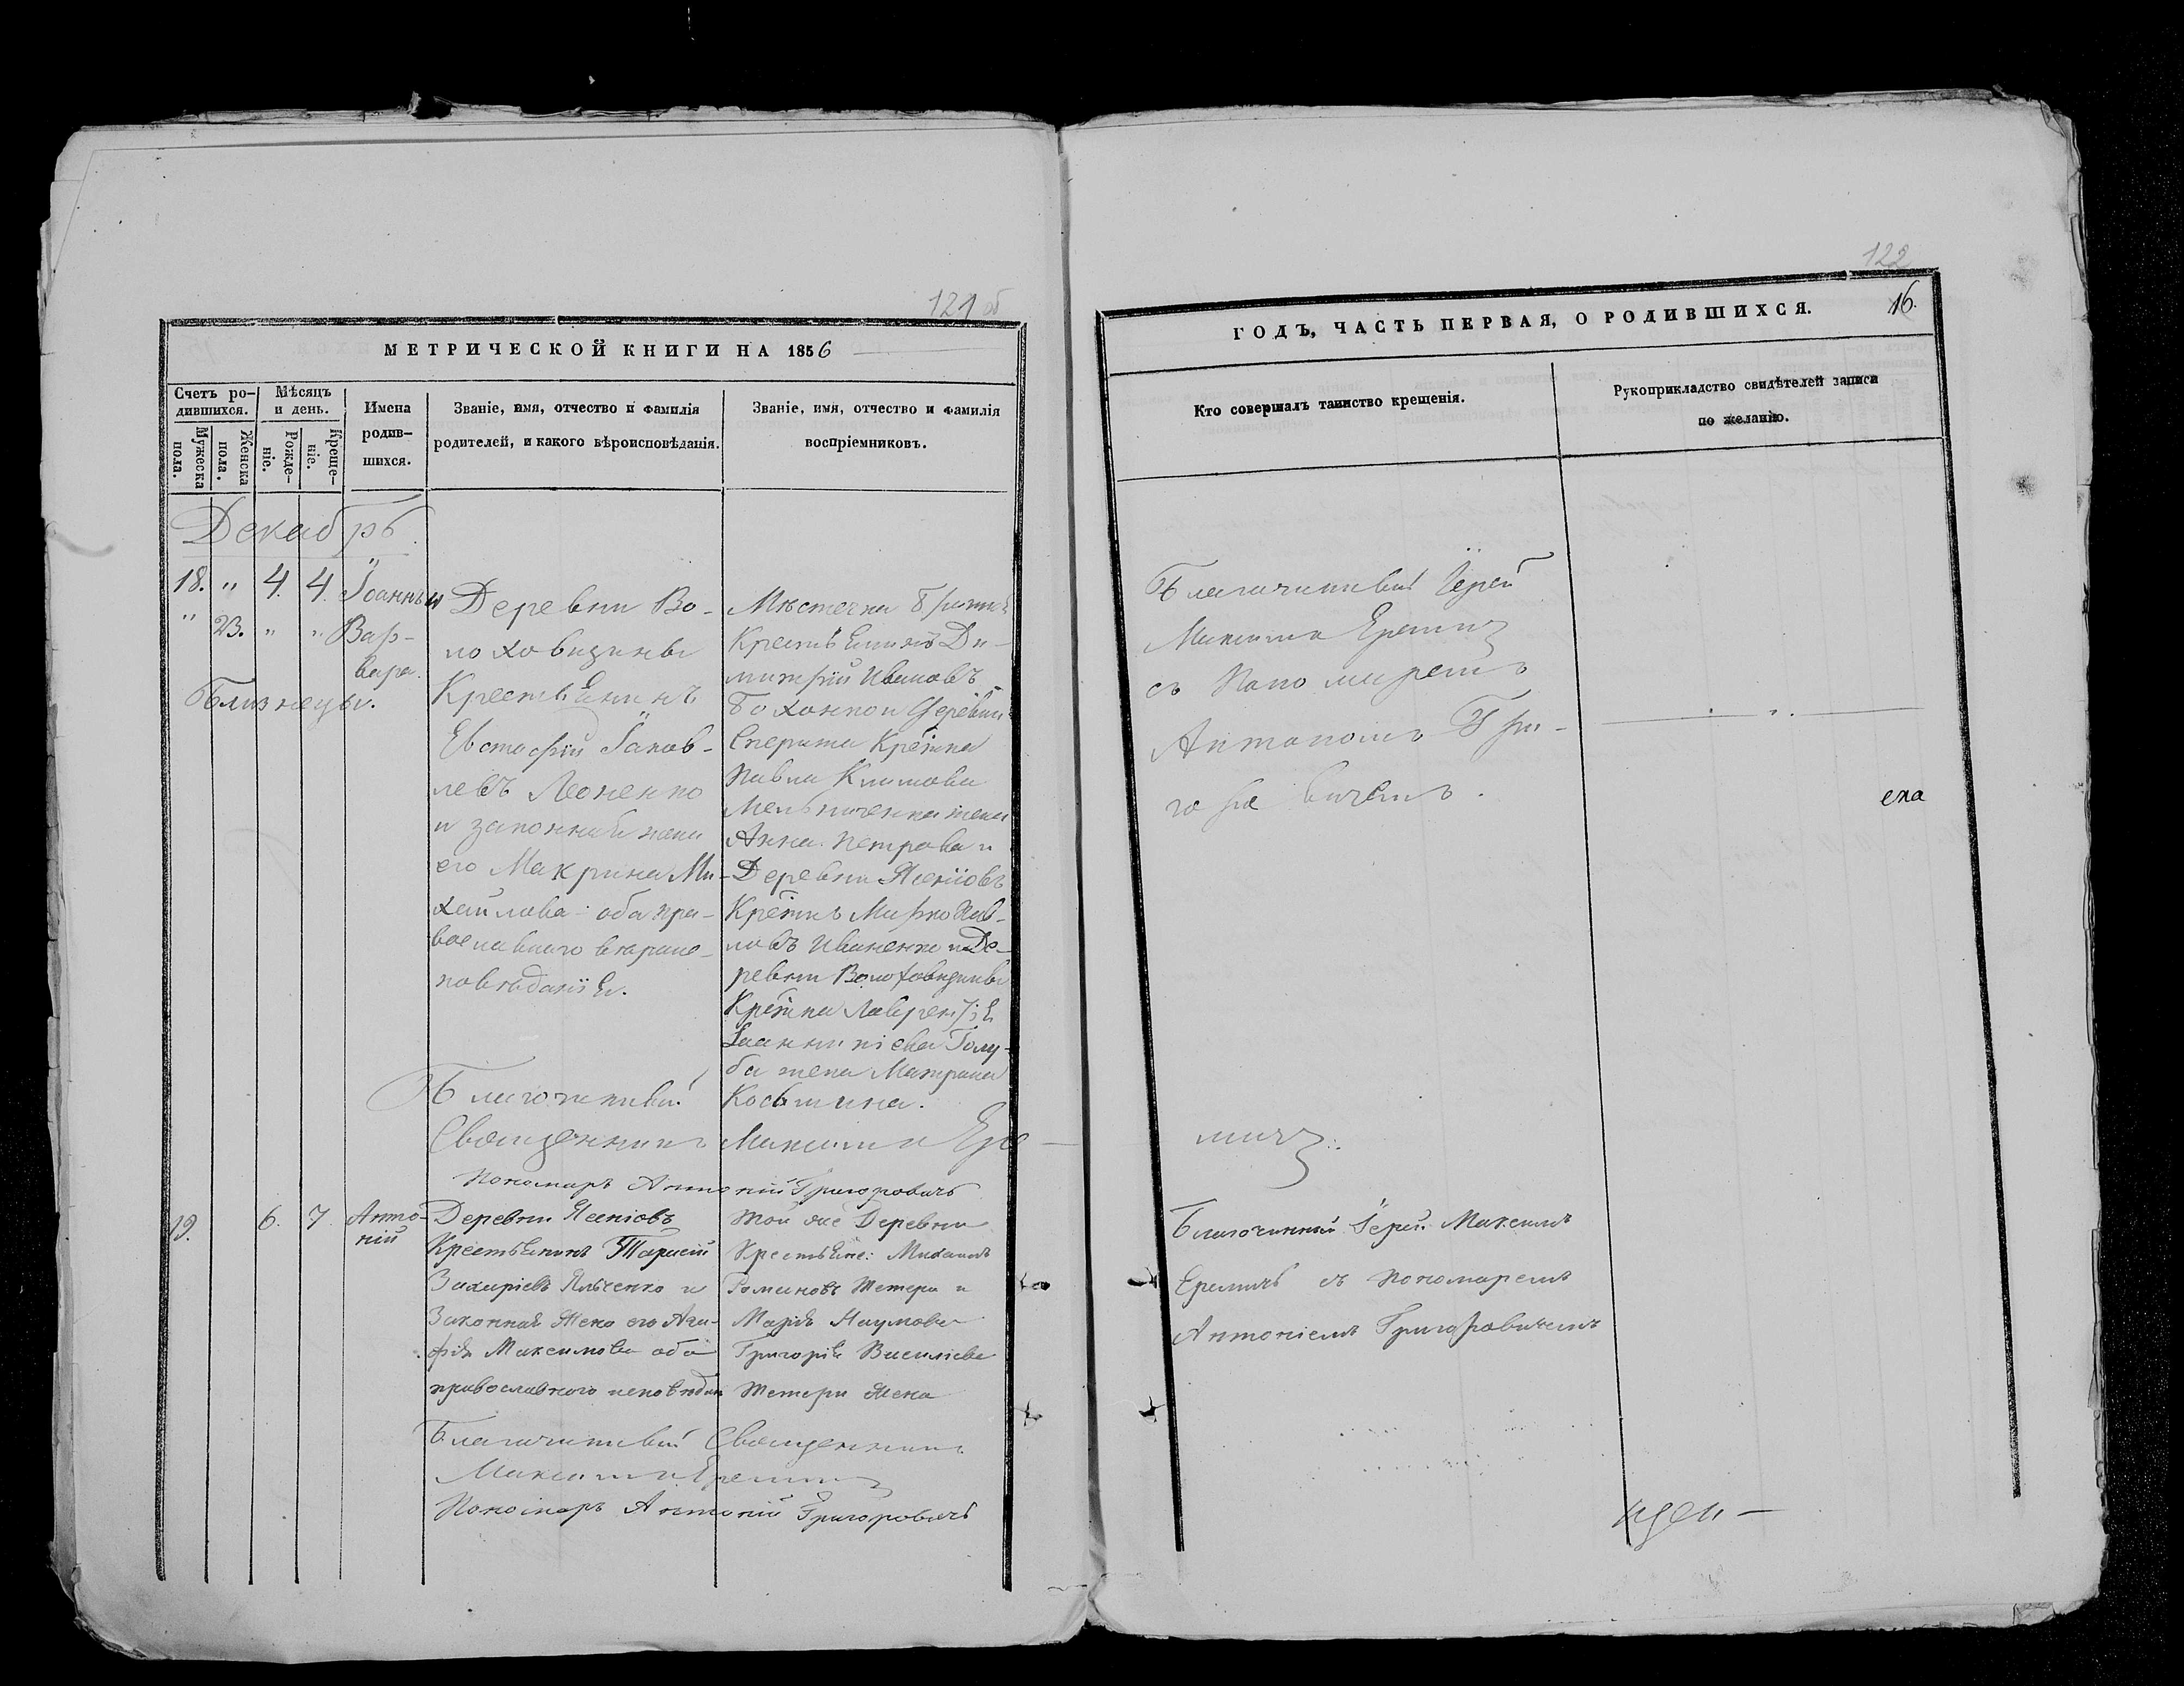 121 об
МЕТРИЧЕСКОЙ КНИГИ НА 1856
Счетъ ро-
дившихся.
Мужеска
пола.
Женска
пола.
Мѣсяцъ
и день.
Рожде-
ніе.
Креще-
ніе.
Имена
родив-
шихся.
Званіе, имя, отчество и фамилія
родителей, и какого вѣроисповѣданія.
Званіе, имя, отчество и фамилія
воспріемниковъ.
Декабрь
18. " 4. 4. Іоаннъ и
" 23. " " Вар-
вара.
Близнецы.
Деревни Во-
лоховщины
Крестьянинъ
Евстафій Іаков-
левъ Леоненко
и законная жена
его Макрина Ми-
хайлова оба пра-
вославнаго вѣроис-
повѣданія.
Мѣстечка
Крестьянинъ Ди-
митрій Ивановъ
деревни
Крестна
Павла Климова
Мельниченка жена
Анна Петрова и
Деревни Ясеніовъ
Крестнъ Мирко Пав-
ловъ Иваненко и Де-
ревни Волоховщины
Крестна Лаврентія
Іоанникіева Голу-
ба жена Матрона
Косьмина.
Благочинный
Священникъ Максимъ Ере
Пономарь Антоній Григоровичъ
19. 6. 7. Анто-
ній
Деревни Ясеніовъ
Крестьянинъ Тарасій
Захаріевъ Ильченко и
Законная Жена его Ага-
фія Максимова оба
православного исповѣдан
Той же Деревни
Крестьяне: Михаилъ
Романовъ Тетеря и
Марія Наумова
Григорія Василіева
Тетери Жена
Благочинный Священникъ
Максимъ Еремичъ
Пономарь Антоній Григоровичъ
122
16.
ГОДЪ, ЧАСТЬ ПЕРВАЯ, О РОДИВШИХСЯ.
Кто совершалъ таинство крещенія.
Рукоприкладство свидѣтелей записи
по желанію.
Благочинный Іерей
Максимъ Еремичъ
съ Пономаремъ
Антоніемъ Гри-
горовичемъ.
ека
мичъ.
Благочинный Іерей Максимъ
Еремичъ съ Пономаремъ
Антоніемъ Григоровичемъ
щен-